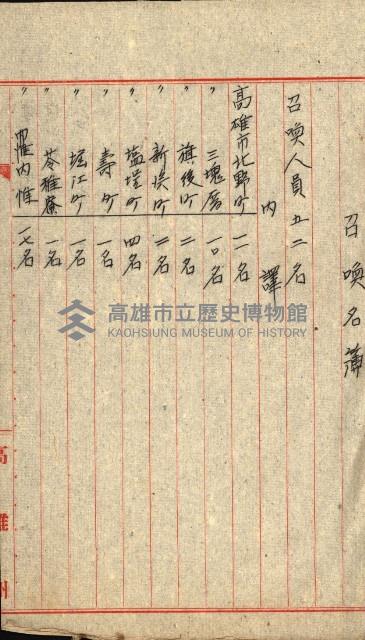 召喚名簿
召喚人員五二名
内譯
高雄市北野町 一一名
〃 三塊厝 一〇名
〃 旗後町 二名
〃 新浜町 二名
〃 塩埕町 四名
〃 壽町 一名
〃 堀江町 一名
〃 苓雅寮 一名
〃 内惟 一七名
高雄州
高雄市立歷史博物館
KAOHSIUNG MUSEUM OF HISTORY